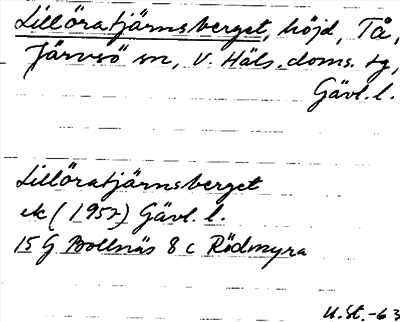 Lillöratjärnsberget, höjd, Tå,
Järvsö sn, V. Häls. doms. tg,
Gävl. l.
Lillöratjärnsberget
ek (1957) Gävl. l.
15 G Bollnäs 8 c Rödmyra
U.St.-63